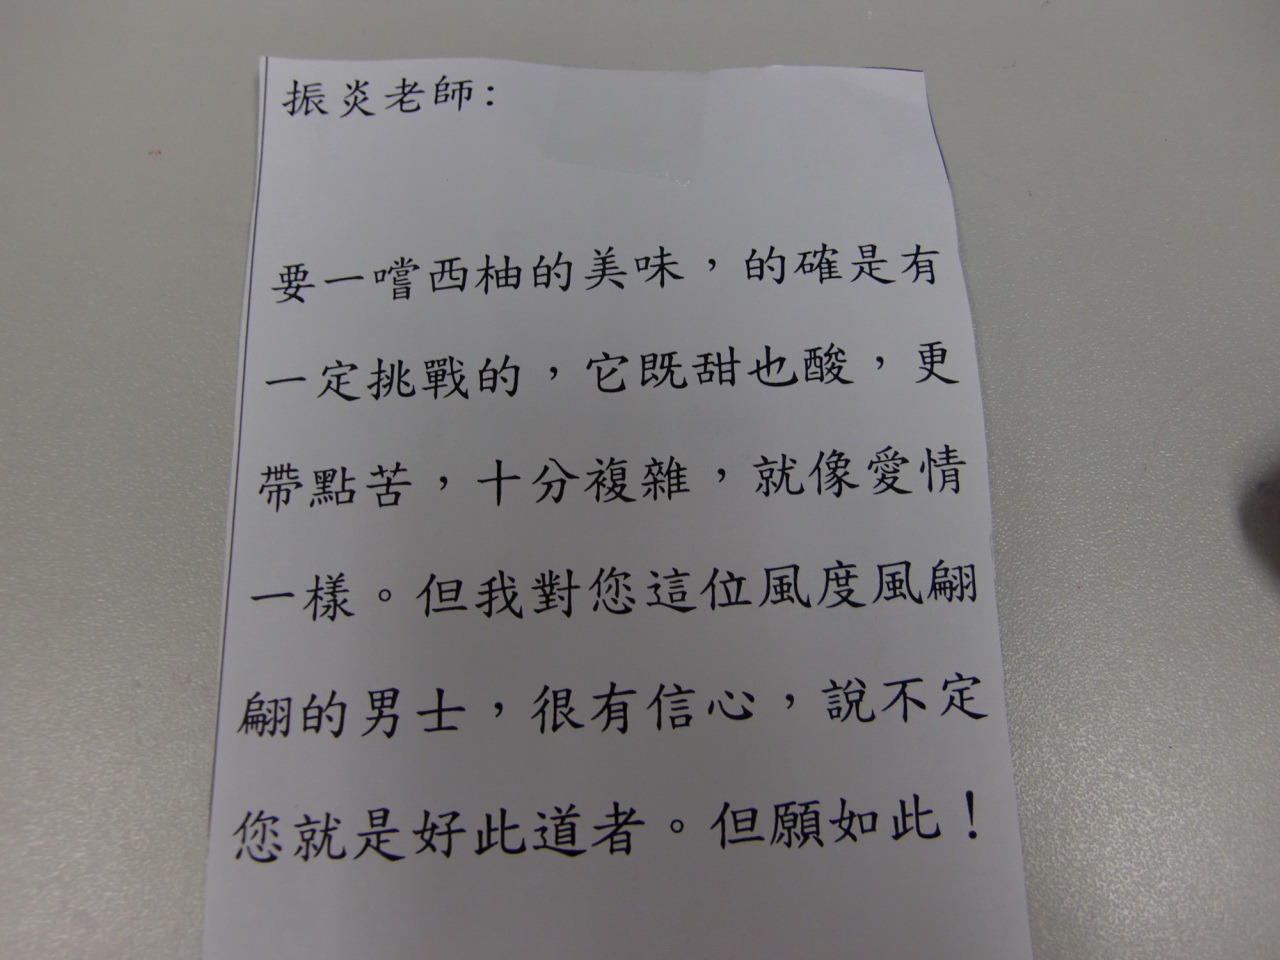 振炎老師：
要一嚐西柚的美味，的確是有
一定挑戰的，它既甜也酸，更
帶點苦，十分複雜，就像愛情
一樣。但我對您這位風度風翩
翩的男士，很有信心，說不定
您就是好此道者。但願如此！